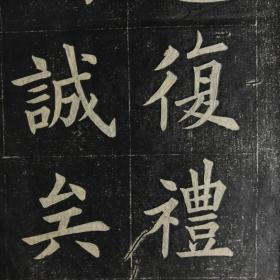 復禮
誠矣